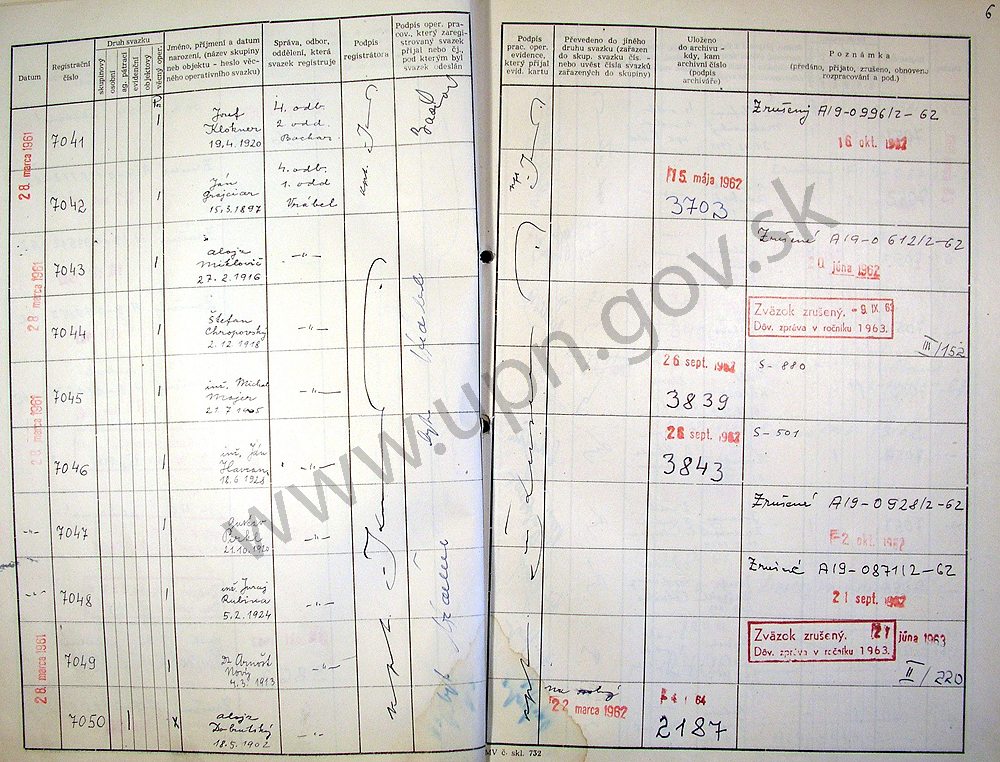 6
Datum
Registrační
číslo
Druh svazku
skupinový
osobní
ag. pátrací
evidenční
objektový
Jméno, příjmení a datum
narození, (název skupiny
neb objektu - heslo věc-
ného operativního svazku)
Správa, odbor,
oddělení, která
svazek registruje
Podpis
registrátora
Podpis oper. pra-
cov., který zaregi-
strovaný svazek
přijal nebo čj.,
pod kterým byl
svazek odeslán
Podpis
prac. oper.
evidence,
který přijal
evid. kartu
Převedeno do jiného
druhu svazku (zařazen
do skup. svazku čís. -
nebo uvést čísla svazků
zařazených do skupiny)
Uloženo
do archivu -
kdy, kam
archivní číslo
(podpis
archiváře)
Poznámka
(předáno, přijato, zrušeno, obnoveno
rozpracování a pod.)
28. marca 1961
7041
Josef
Klokner
19.4.1920
4. odb.
2 odd
Bachar
Zrušený A/9-0996/2-62
16 okt. 1962
28. marca 1961
7042
Ján
Grajciar
15.3.1897
4. odb.
1. odd
Vrábel
15. mája 1962
3703
28. marca 1961
7043
Alojz
Miklovič
27.2.1916
-"-
Zrušené A/9-0612/2-62
20 júna 1962
7044
Štefan
Chropovský
2.12.1918
-"-
Zväzok zrušený. - 9. IX. 63
Dôv. zpráva v ročníku 1963.
III/152
28. marca 1961
7045
inž. Michal
Majer
21.7.1905
-"-
26 sept. 1962
3839
S-880
7046
inž. Ján
Havran
18.6.1928
-"-
26 sept. 1962
3843
S-501
-"-
7047
Pirkl
21.10.1920
-"-
Zrušené A/9-0928/2-62
-2 okt. 1962
-"-
7048
inž. Juraj
Rubina
5.2.1924
-"-
Zrušené A/9-0871/2-62
21 sept. 1962
28. marca 1961
7049
Dr Arnošt
Nový
4.3.1913
-"-
Zväzok zrušený. 21 júna 1963
Dôv. zpráva v ročníku 1963.
II/220
7050
x
Alojz
Dobrutský
18.5.1902
-"-
na
22 marca 1962
64
2187
MV č. skl. 732
www.upn.gov.sk